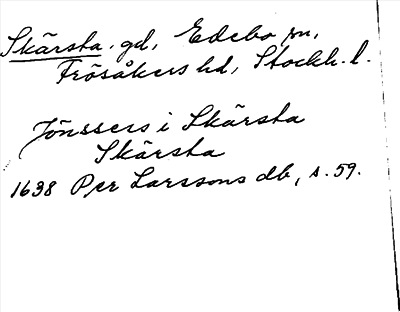 Skärsta, gd, Edebo sn,
Frösåkers hd, Stockh. l.
Jönssers i Skärsta
Skärsta
1638 Per Larssons db, s. 59.